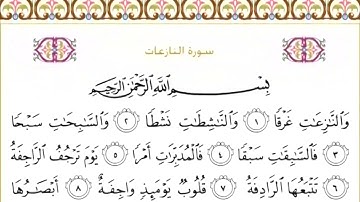 سورة النازعات
بِسْمِ اللَّهِ الرَّحْمَٰنِ الرَّحِيمِ
وَالنَّازِعَاتِ غَرْقًا ١ وَالنَّاشِطَاتِ نَشْطًا ٢ وَالسَّابِحَاتِ سَبْحًا
٣ فَالسَّابِقَاتِ سَبْقًا ٤ فَالْمُدَبِّرَاتِ أَمْرًا ٥ يَوْمَ تَرْجُفُ الرَّاجِفَةُ
٦ تَتْبَعُهَا الرَّادِفَةُ ٧ قُلُوبٌ يَوْمَئِذٍ وَاجِفَةٌ ٨ أَبْصَارُهَا